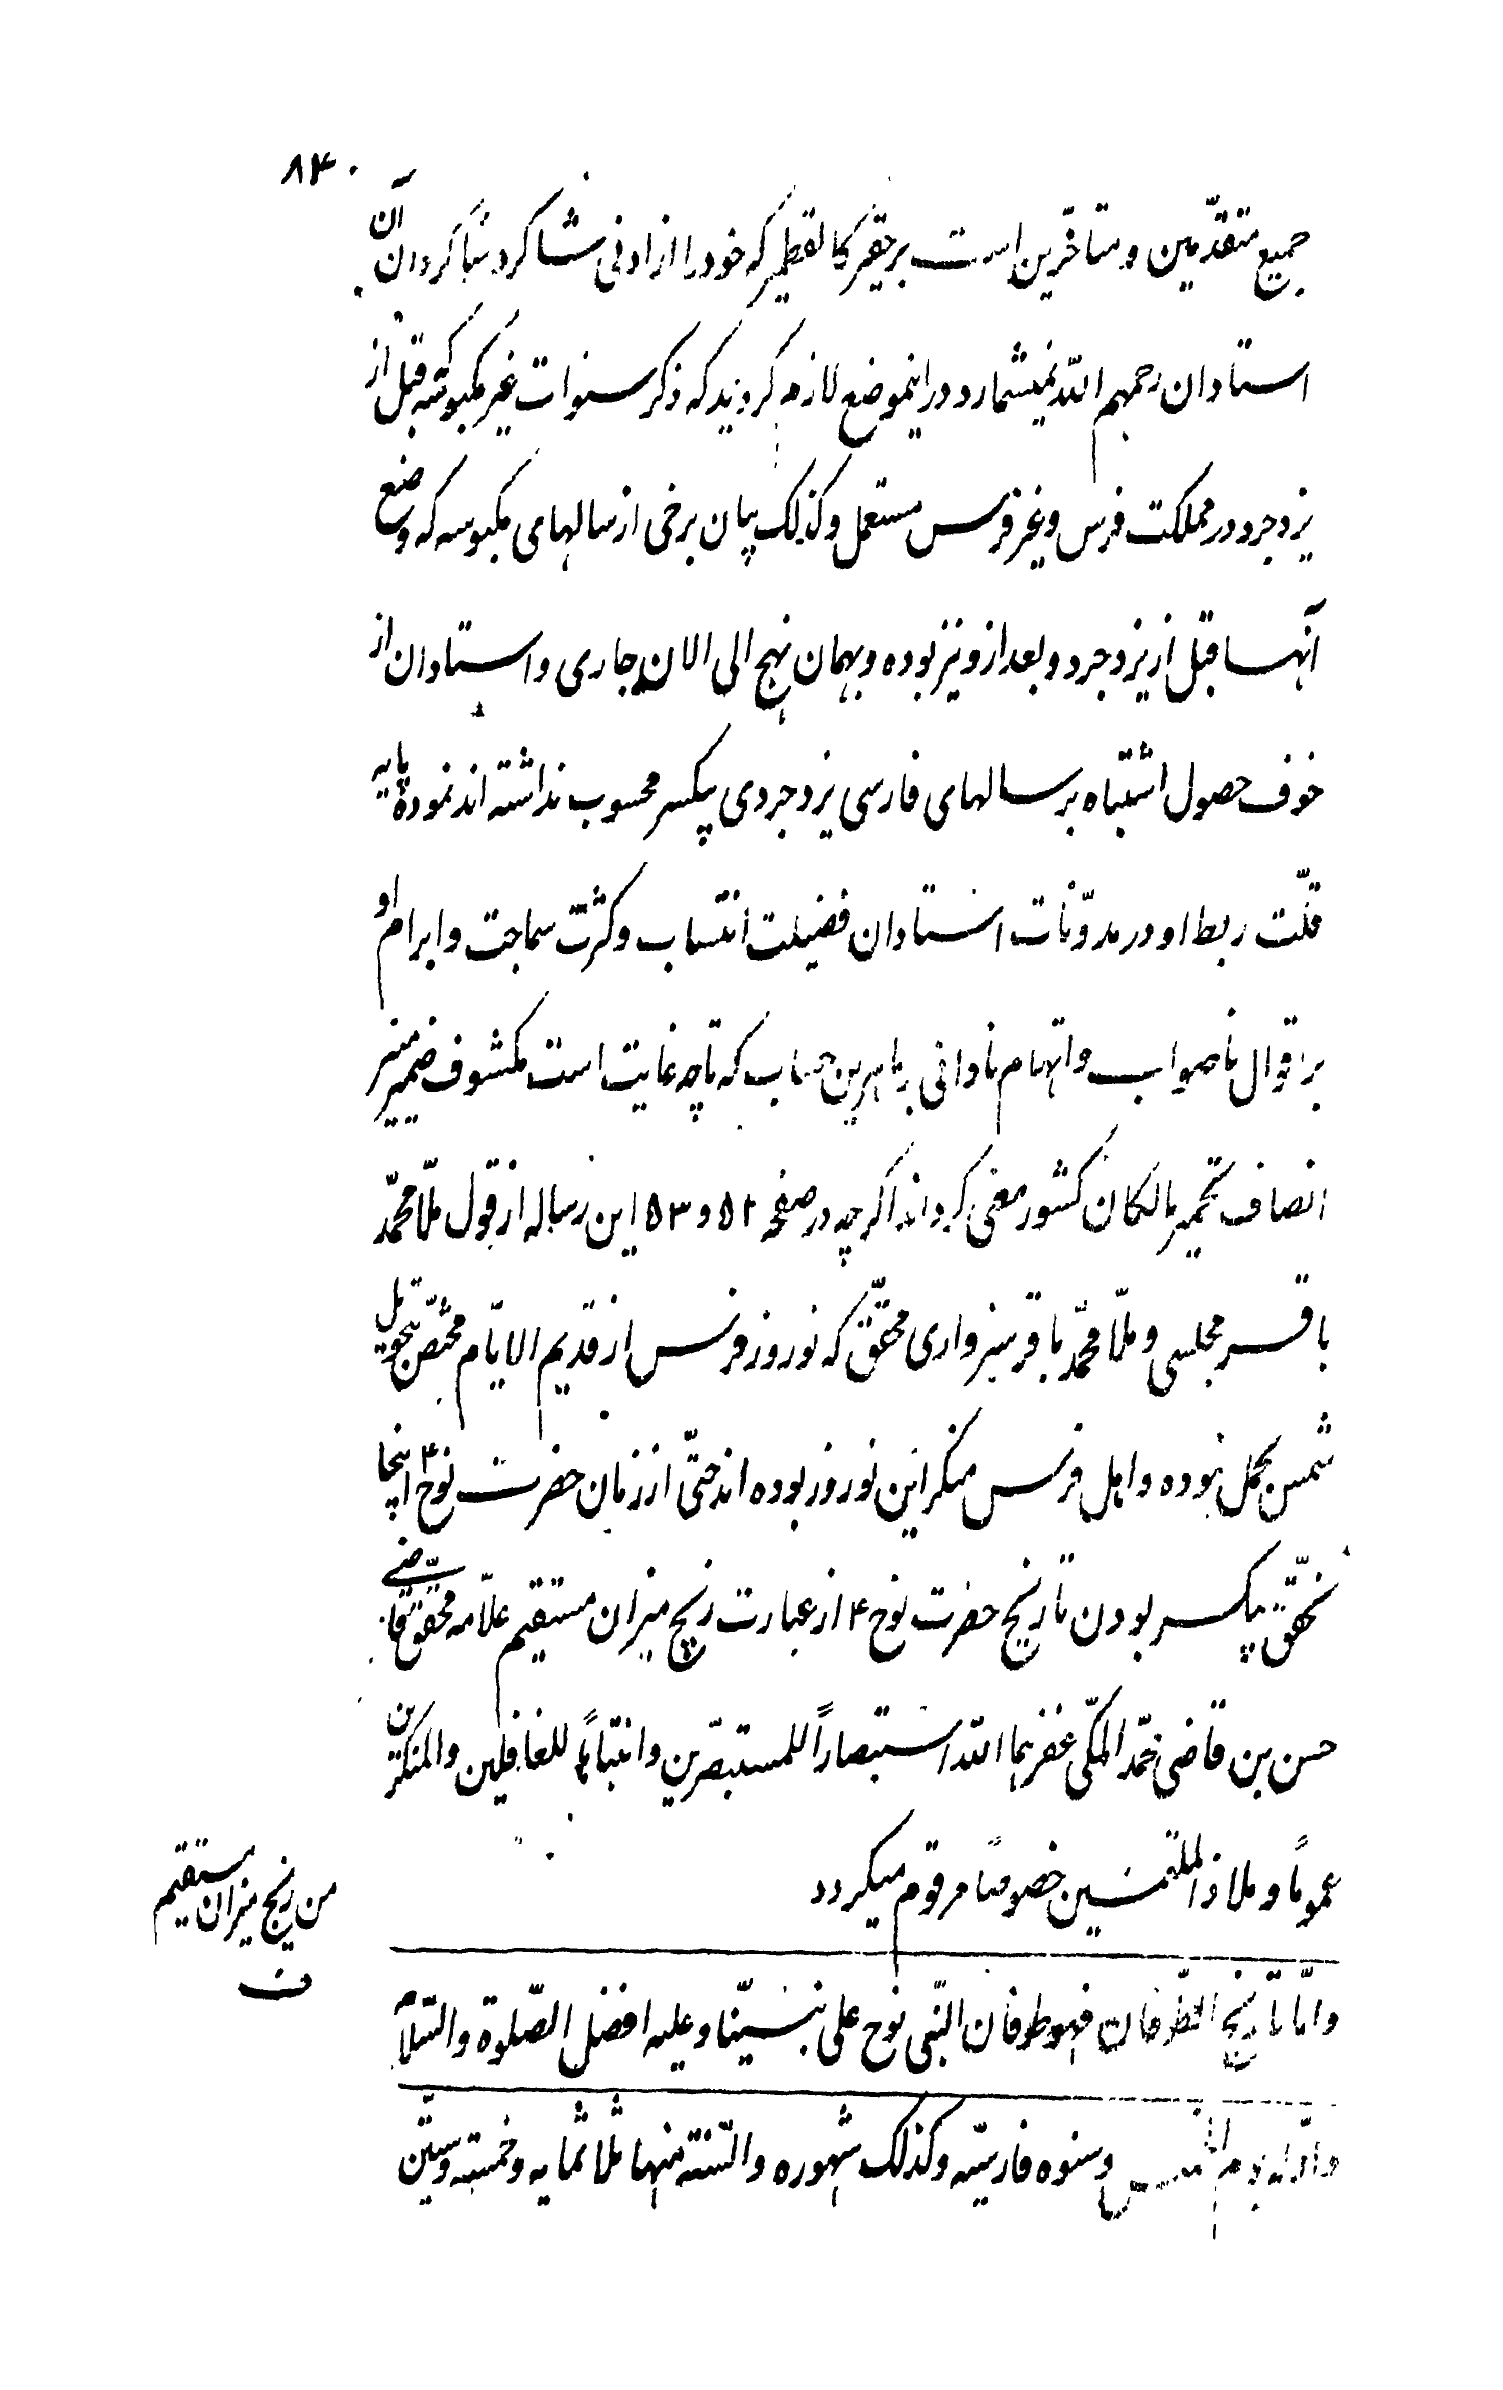 ۸۴۰
جمیع متقدّمین و متأخّرین است بر حقیر کالقطمیر که خود را از ادنی شاکرد شاکردان آن
استادان رحمهم اللّه نمیشمارد در اینموضع لازم کردید که ذکر سنوات غیر مکبوسه قبل از
یزدجرد در مملکت فرس و غیر فرس مستعمل و کذلک بیان برخی از سالهای مکبوسه که وضع
آنها قبل از یزدجرد و بعد از و نیز بوده و بهمان نهج الی الان جاری و استادان از
خوف حصول اشتباه بر سالهای فارسی یزدجردی بیکسر محسوب نداشته اند نموده پایه
قلّت ربط او در مدوّنات استادان فضیلت انتساب و کثرت سماجت و ابرام او
بر اقوال ناصواب و اتهام نادانی بماهرین حساب که تا چه غایت است مکشوف ضمیر منیر
انصاف تخمیر مالکان کشور معنی کرداند اکرچه در صفحه ۵۲ و ۵۳ این رساله از قول ملّا محمّد
باقر مجلسی و ملّا محمّد باقر سبزواری محقّق که نوروز فرس از قدیم الایّام مختصّ بتحویل
شمس بحمل نبوده و اهل فرس منکر این نوروز بوده اند حتّی از زمان حضرت نوح ۴ اینجا
تحقّق بیکسر بودن تاریخ حضرت نوح ۴ از عبارت زیج میزان مستقیم علّامه محقّق قاضی
حسن بن قاضی محمّد المکّی غفر لهما اللّه استبصاراً للمستبصّرین و انتباهاً للغافلین والمنکرین
عموماً و ملاذ الملتمسین خصوصاً مرقوم میکردد
من زیج میزان مستقیم
ف
وامّا تاریخ الطّوفان فهو طوفان النّبی نوح علی نبیّنا و علیه افضل الصّلوة والسّلام
واوّله یوم الخمیس وسنوه فارسیّه وکذلک شهوره والسّنة منها ثلاثمایه وخمسة وستّین